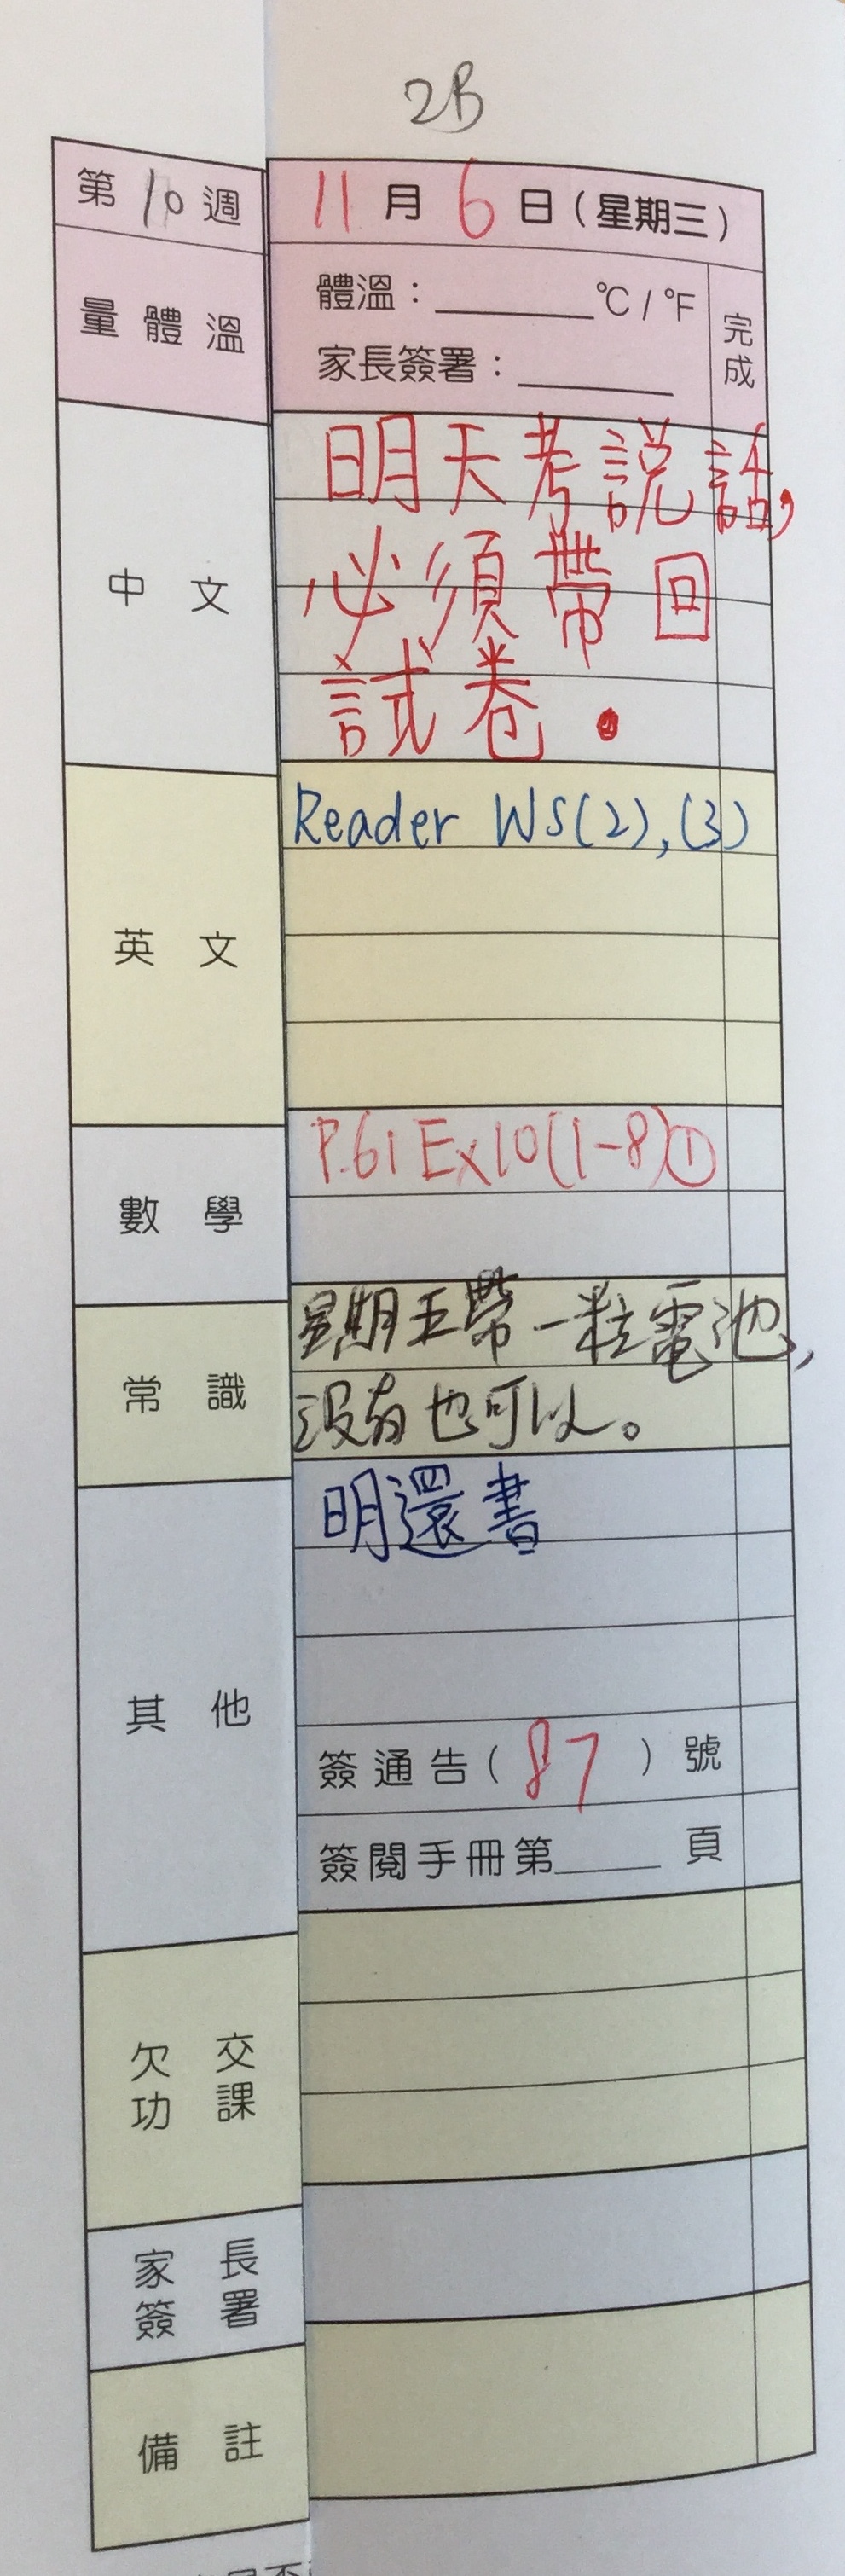 2B
第 10 週
11 月 6 日(星期三)
量體溫
體溫：______°C / °F
家長簽署：______
完成
中文
明天考說話,
必須帶回
試卷.
英文
Reader WS(2),(3)
數學
P.61 Ex10(1-8)①
常識
星期五帶一粒電池,
沒有也可以。
其他
明還書
簽通告(87)號
簽閱手冊第____頁
欠交
功課
家長
簽署
備註